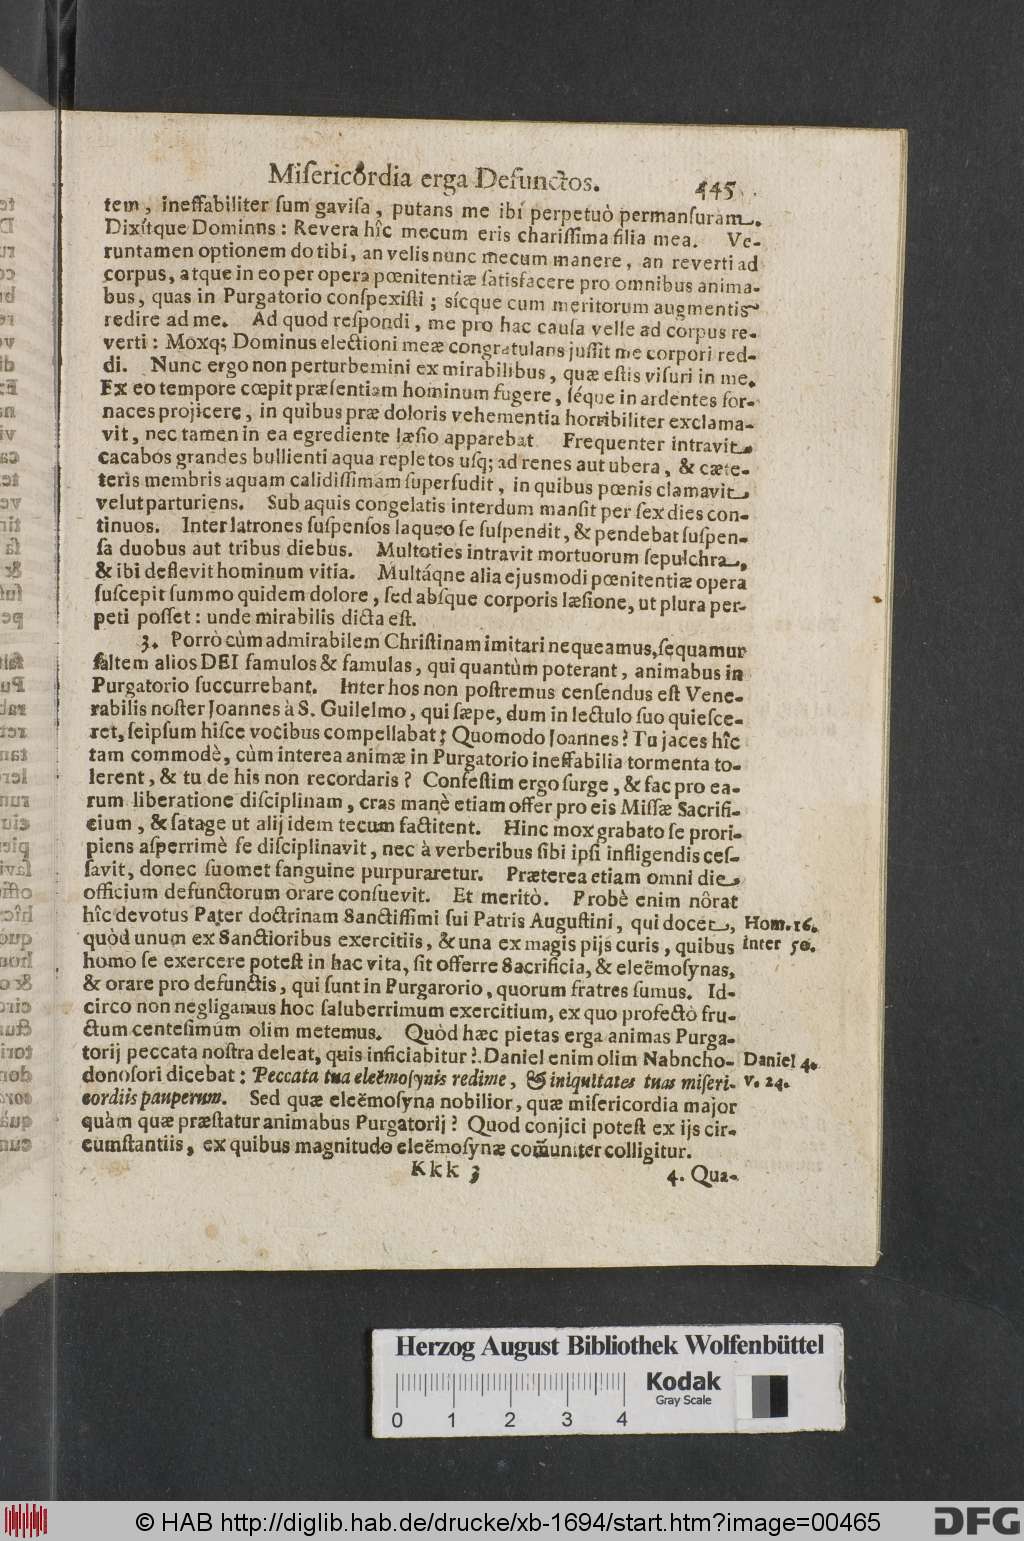 Miſericordia erga Defunctos. 445
tem, ineffabiliter ſum gaviſa, putans me ibi perpetuò permanſuram.
Dixitque Dominns: Revera hîc mecum eris chariſſima filia mea. Ve-
runtamen optionem do tibi, an velis nunc mecum manere, an reverti ad
corpus, atque in eo per opera pœnitentiæ ſatisfacere pro omnibus anima-
bus, quas in Purgatorio conſpexiſti; sícque cum meritorum augmentis
redire ad me. Ad quod reſpondi, me pro hac cauſa velle ad corpus re-
verti: Moxq; Dominus electioni meæ congratulans juſſit me corpori red-
di. Nunc ergo non perturbemini ex mirabilibus, quæ eſtis viſuri in me.
Ex eo tempore cœpit præſentiam hominum fugere, ſéque in ardentes for-
naces projicere, in quibus præ doloris vehementia horribiliter exclama-
vit, nec tamen in ea egrediente læſio apparebat Frequenter intravit
cacabos grandes bullienti aqua repletos uſq; ad renes aut ubera, & cæte-
teris membris aquam calidiſſimam ſuperfudit, in quibus pœnis clamavit
velut parturiens. Sub aquis congelatis interdum manſit per ſex dies con-
tinuos. Inter latrones ſuſpenſos laqueo ſe ſuſpendit, & pendebat ſuſpen-
ſa duobus aut tribus diebus. Multoties intravit mortuorum ſepulchra,
& ibi deflevit hominum vitia. Multáqne alia ejusmodi pœnitentiæ opera
ſuſcepit ſummo quidem dolore, ſed abſque corporis læſione, ut plura per-
peti poſſet: unde mirabilis dicta eſt.
3. Porrò cùm admirabilem Chriſtinam imitari nequeamus, ſequamur
ſaltem alios DEI famulos & famulas, qui quantùm poterant, animabus in
Purgatorio ſuccurrebant. Inter hos non poſtremus cenſendus eſt Vene-
rabilis noſter Joannes à S. Guilelmo, qui ſæpe, dum in lectulo ſuo quieſce-
ret, ſeipſum hiſce vocibus compellabat; Quomodo Joannes? Tu jaces hîc
tam commodè, cùm interea animæ in Purgatorio ineffabilia tormenta to-
lerent, & tu de his non recordaris? Confeſtim ergo ſurge, & fac pro ea-
rum liberatione diſciplinam, cras manè etiam offer pro eis Miſſæ Sacrifi-
cium, & ſatage ut alij idem tecum factitent. Hinc mox grabato ſe prori-
piens aſperrimè ſe diſciplinavit, nec à verberibus ſibi ipſi infligendis ceſ-
ſavit, donec ſuomet ſanguine purpuraretur. Præterea etiam omni die
officium defunctorum orare conſuevit. Et meritò. Probè enim nôrat
hîc devotus Pater doctrinam Sanctiſſimi ſui Patris Auguſtini, qui docet, Hom. 16.
quòd unum ex Sanctioribus exercitiis, & una ex magis pijs curis, quibus inter 50.
homo ſe exercere poteſt in hac vita, ſit offerre Sacrificia, & eleëmoſynas,
& orare pro defunctis, qui ſunt in Purgarorio, quorum fratres ſumus. Id-
circo non negligamus hoc ſaluberrimum exercitium, ex quo profectò fru-
ctum centeſimum olim metemus. Quòd hæc pietas erga animas Purga-
torij peccata noſtra deleat, quis inficiabitur? Daniel enim olim Nabncho- Daniel 4.
donoſori dicebat: Peccata tua eleëmoſynis redime, & iniquitates tuas miſeri- v. 24.
cordiis pauperum. Sed quæ eleëmoſyna nobilior, quæ miſericordia major
quàm quæ præſtatur animabus Purgatorij? Quod conjici poteſt ex ijs cir-
cumſtantiis, ex quibus magnitudo eleëmoſynæ com̃uniter colligitur.
Kkk 3 4. Qua-
Herzog August Bibliothek Wolfenbüttel
Kodak
Gray Scale
0 1 2 3 4
© HAB http://diglib.hab.de/drucke/xb-1694/start.htm?image=00465
DFG